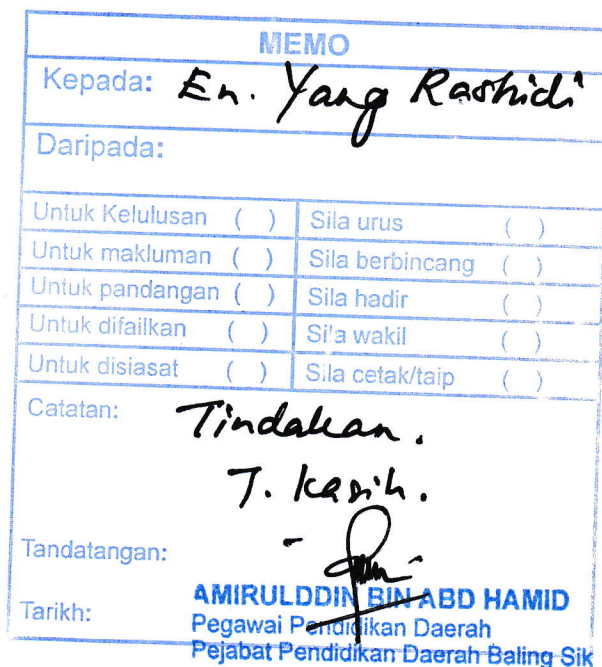 MEMO
Kepada: En. Yang Rashidi
Daripada:
Untuk Kelulusan ( ) Sila urus ( )
Untuk makluman ( ) Sila berbincang ( )
Untuk pandangan ( ) Sila hadir ( )
Untuk difailkan ( ) Sila wakil ( )
Untuk disiasat ( ) Sila cetak/taip ( )
Catatan: Tindakan.
T. kasih.
Tandatangan:
AMIRULDDIN BIN ABD HAMID
Tarikh: Pegawai Pendidikan Daerah
Pejabat Pendidikan Daerah Baling Sik